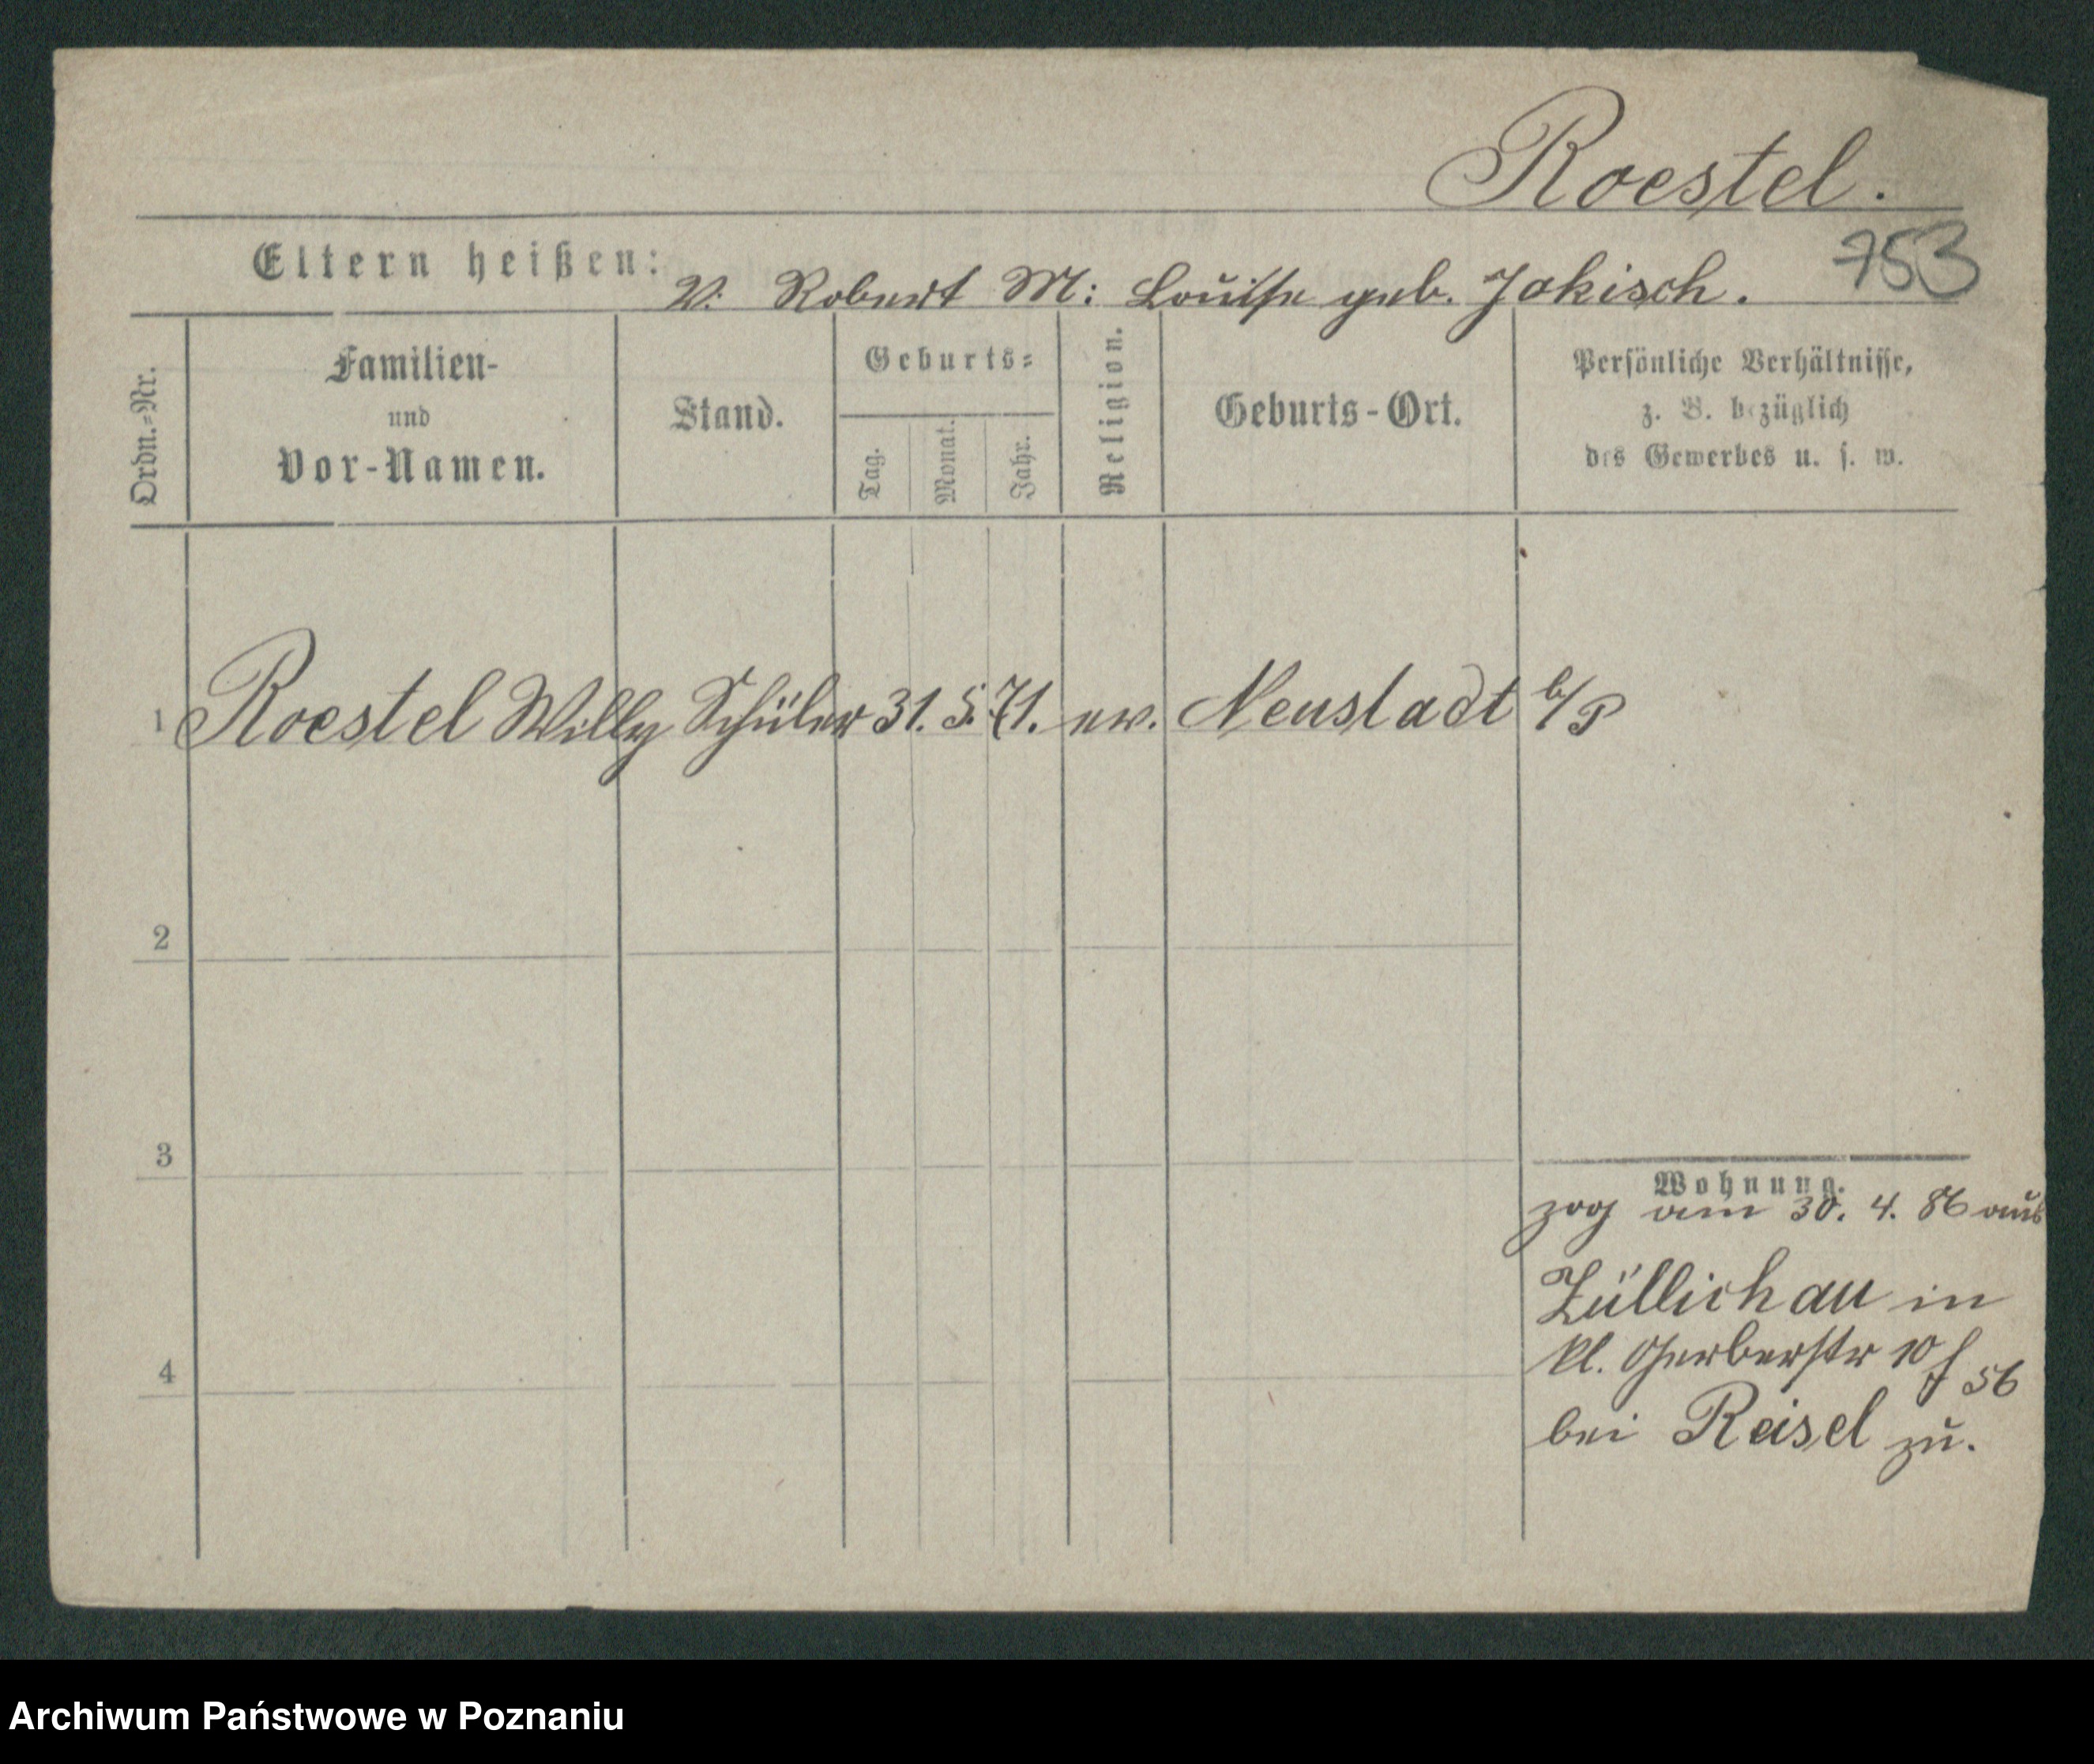 Roestel.
753
Eltern heißen: V. Robert M: Louise geb. Jakisch.
Ordn.=Nr.
Familien-
und
Vor-Namen.
Stand.
Geburts=
Tag.
Monat.
Jahr.
Religion.
Geburts-Ort.
Persönliche Verhältnisse,
z. B. bezüglich
des Gewerbes u. s. w.
1 Roestel Willy Schüler 31. 5. 71. ev. Neustadt b/P
2
3
Wohnung.
zog am 30. 4. 86 aus
Züllichau in
kl. Gerberstr 10
56
bei Reisel zu.
4
Archiwum Państwowe w Poznaniu